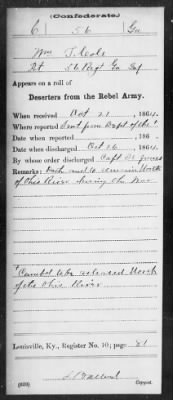 (Confederate.)
C 56 Ga
Wm T. Cole
Pvt 56 Regt Ga Inf
Appears on a roll of
Deserters from the Rebel Army.
When received Oct 21, 1864
Where reported Sent from Dept of the
Date when reported , 186 .
Date when discharged Oct 26, 1864
By whose order discharged Capt
Remarks: Oath and to remain North
of Ohio River during the War
Cannot be released North
of the Ohio River
Louisville, Ky., Register No. 10; page 81
Copyist.